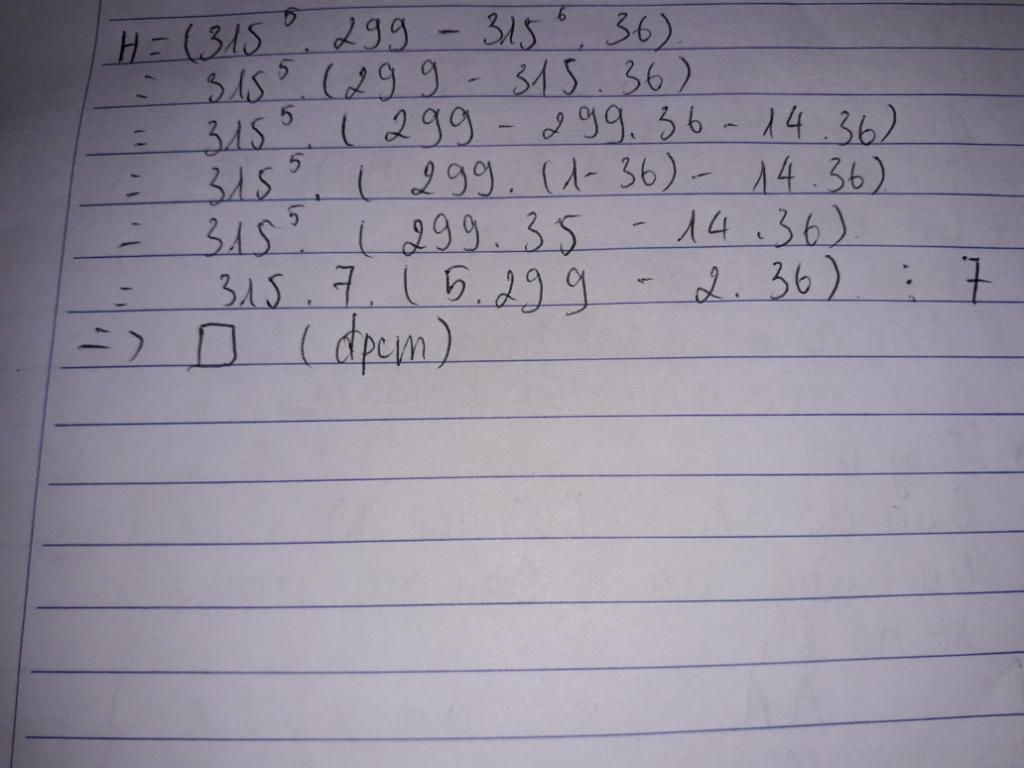 H = (315⁵. 299 - 315⁶. 36)
= 315⁵. (299 - 315. 36)
= 315⁵. ( 299 - 299. 36 - 14. 36)
= 315⁵. ( 299. (1- 36) - 14. 36)
= 315⁵. ( 299. 35 - 14. 36)
= 315. 7. ( 5. 299 - 2. 36) ⋮ 7
=> □ (đpcm)